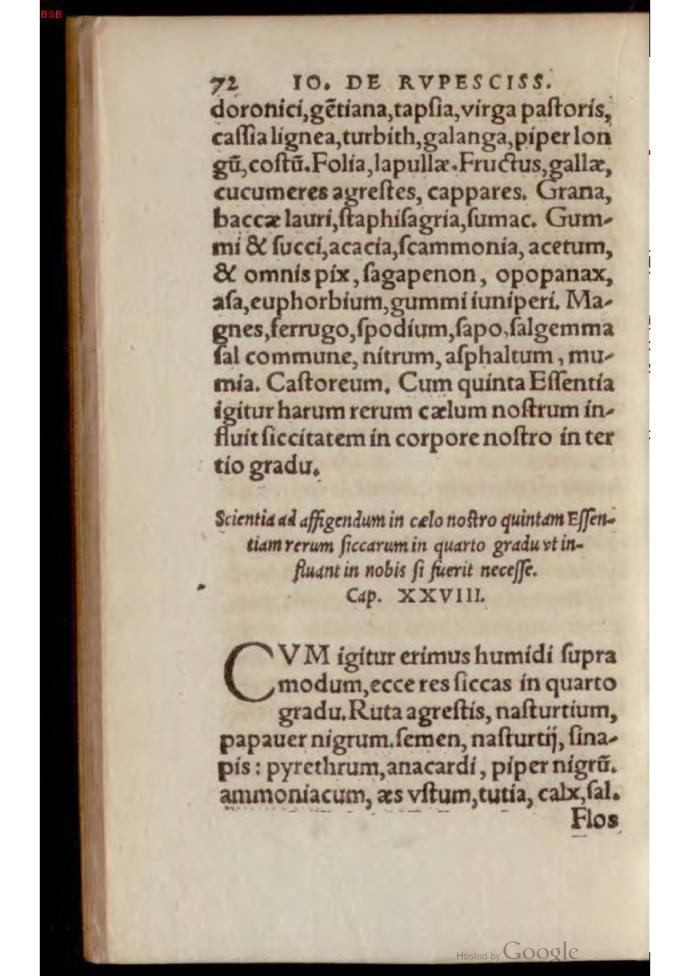 BSB
72 IO. DE RVPESCISS.
doronici,gẽtiana,tapſia,virga paſtoris,
caſſia lignea,turbith,galanga,piper lon
gũ,coſtũ.Folia,lapullæ.Fructus,gallæ,
cucumeres agreſtes, cappares. Grana,
baccæ lauri,ſtaphiſagria,ſumac. Gum-
mi & ſucci,acacia,ſcammonia, acetum,
& omnis pix, ſagapenon, opopanax,
aſa,euphorbium,gummi iuniperi. Ma-
gnes,ferrugo,ſpodium,ſapo,ſalgemma
ſal commune, nitrum, aſphaltum, mu-
mia. Caſtoreum. Cum quinta Eſſentia
igitur harum rerum cælum noſtrum in-
fluit ſiccitatem in corpore noſtro in ter
tio gradu.
Scientia ad affigendum in cælo noſtro quintam Eſſen-
tiam rerum ſiccarum in quarto gradu vt in-
fluant in nobis ſi fuerit neceſſe.
Cap. XXVIII.
CVM igitur erimus humidi ſupra
modum,ecce res ſiccas in quarto
gradu.Ruta agreſtis, naſturtium,
papauer nigrum.ſemen, naſturtij, ſina-
pis : pyrethrum,anacardi, piper nigrũ.
ammoniacum, æs vſtum,tutia, calx,ſal.
Flos
Hosted by Google